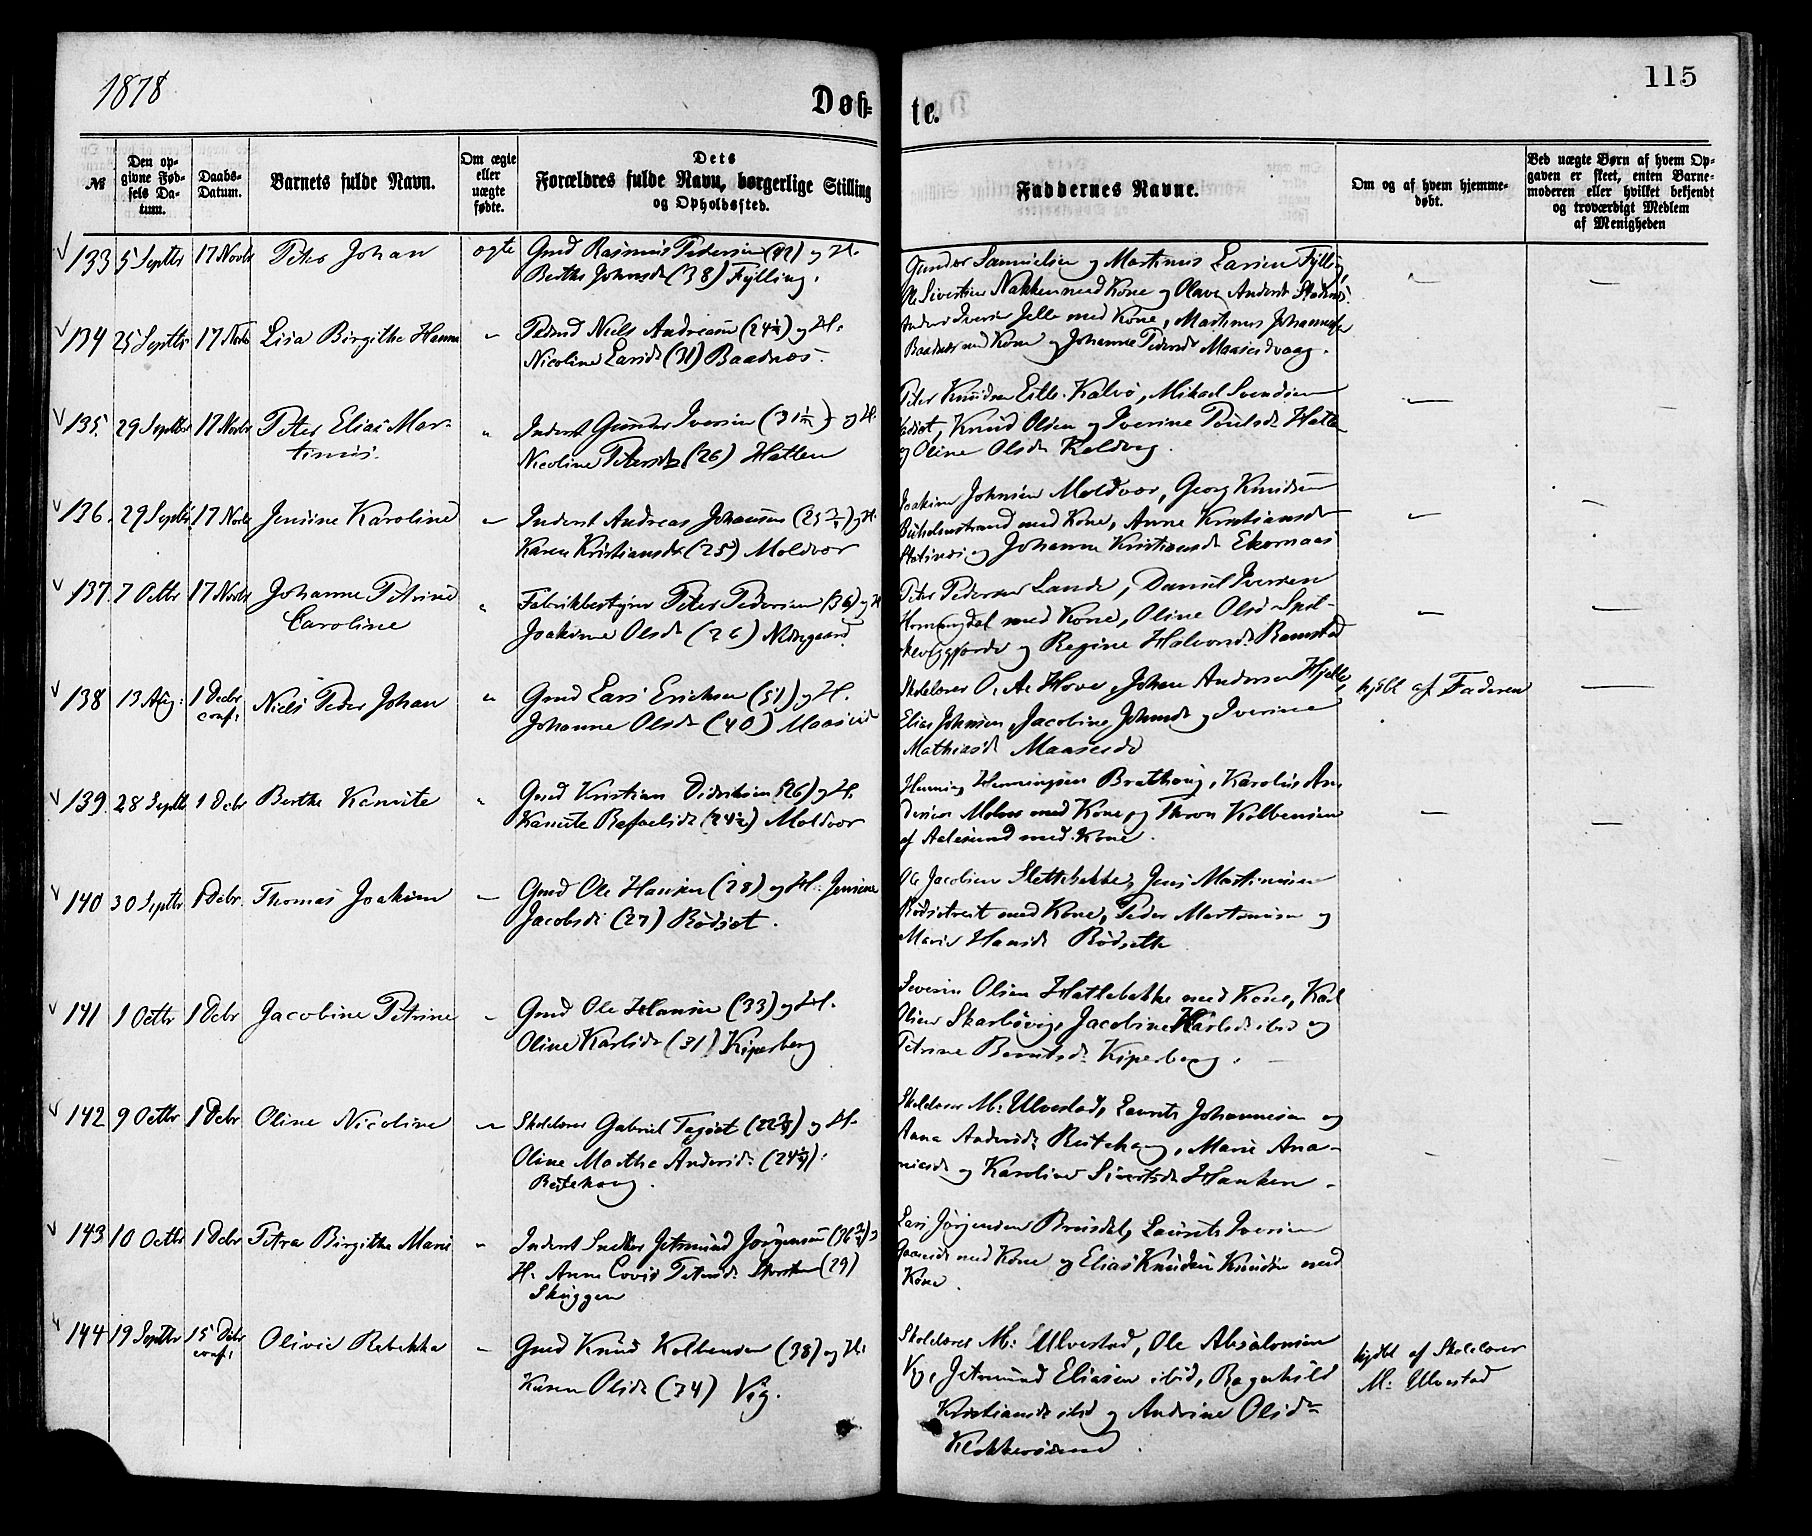 1878
Døb-
te.
115
№
Den op-
givne Fød-
sels Da-
tum.
Daabs-
Datum.
Barnets fulde Navn.
Om ægte
eller
uægte
fødte.
Dets
Forældres fulde Navn, borgerlige Stilling
og Opholdssted.
Faddernes Navne.
Om og af hvem hjemme-
døbt.
Ved uægte Børn af hvem Op-
gaven er skeet, enten Barne-
moderen eller hvilket bekjendt
og troværdigt Medlem
af Menigheden
133 5 Septbr 17 Novbr Peter Johan ægte Gmd Rasmus Pedersen (42) og H.
Berthe Johnsdr (38) Fylling.
Gunder Samuelsen og Martinus Larsen Fylling
Ole Sivertsen Nakken med Kone og Olave Andersdr
134 25 Septbr 17 Novbr Lisa Birgithe Hanna " Niels Andreasen (24½) og H.
Nicoline Larsdr (31) Baadnæs.
Anders Iversen Jelle med Kone, Martinus Johannesen
Baadnæs med Kone og Johanne Pedersdr Maaseidvaag.
135. 29 Septbr 17 Novbr Peter Elias Mar-
tinus.
" Inderst Gunder Iversen (31½) og H.
Nicoline Petersdr (26) Hatlen
Peter Knudsen Kalvø, Mikael Svendsen
Knud Olsen og Iverine Poulsdr Hatlen
og Oline Olsdr Koldvig.
136. 29 Septbr 17 Novbr Jensine Karoline " Inderst Andreas Johansen og H.
Karen Kristiansdr (25) Moldvær
Joakim Johnsen Moldvær, Georg Knudsen
med Kone, Anne Kristiansdr
og Johanne Kristiansdr Ekornæs
137. 7 Octbr 17 Novbr Johanne Petrine
Caroline
" Fabrikbestyrer Peter Pedersen (36) og H
Joakime Olsdr (26) Nørgaard
Peter Pedersen Lande, Daniel Iversen
med Kone, Oline Olsdr Spil-
og Regine Halvorsdr Ramstad
138 13 Aug: 1 Decbr
conf:
Niels Peder Johan " Gmd Lars Ericksen (51) og H.
Johanne Olsdr (40) Maaseid
Skolelærer O. A. Hove, Johan Andersen Hjelle,
Elias Johnsen, Jacobine Johnsdr og Iverine
Mathiasdr Maaseide
hjdbt af Faderen
139. 28 Septbr 1 Debr Berthe Kanute " Gmd Kristian Didriksen (26) og H.
Kanute Rafaelsdr (24½) Moldvær
Henning Henningsen Brathoug, Karolus An-
dersen med Kone, og Thron Kolbensen
af Aalesund med Kone.
140 30 Septbr 1 Debr. Thomas Joakim " Gmd Ole Hansen (28) og H. Jensine
Jacobsdr (27) Rødset.
Ole Jacobsen Slettebakke, Jens Martinusen
med Kone, Peder Martinusen og
Marie Hansdr Rødseth
141 1 Octbr 1 Debr Jacobine Petrine " Gmd Ole Hansen (33) og H.
Oline Karlsdr (31) Kiperberg
Severin Olsen Hatlebakke med Kone, Karl
Olsen Skarbøvig, Jacobine Karlsdr ibid og
Petrine Berntsdr Kiperberg.
142 9 Octbr 1 Debr Oline Nicoline " Skolelærer Gabriel Tagset og H.
Oline Marthe Andersdr:
Reitehoug.
Skolelærer M: Ulvestad, Laurits Johannesen og
Anna Andersdr Reitehoug, Marie Ana-
niasdr og Karoline Sivertsdr Hanken.
143 10 Octbr 1 Debr Petra Birgitha Marie " Inderst Snedker Jetmund Jørgensen og
H. Anne Lovise Petersdr (29)
Skuggen
Lars Jørgensen Brusdal, Laurits Iversen
med Kone og Elias Knudsen med
Kone.
144 19 Septbr 15 Debr
conf:
Olivie Rebekka " Gmd Knud Kolbensen (38) og H:
Karen Olsdr (24) Vig.
Skolelærer M: Ulvestad, Ole Absalonsen
Vig, Jetmund Eliasen ibid, Ragnhild
Kristiansdr ibid og Andrine Olsdr
Klokkersund.
hjdbt af Skolelærer
M: Ulvestad